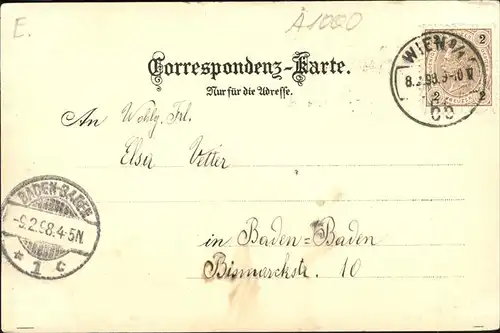 E.
A1000
Correspondenz-Karte.
Nur für die Adresse.
2
2 2
WIEN 9/1
8.2.98.9-10 V
69
An Wohlg. Frl.
Elsa Vetter
in Baden-Baden
Bismarckstr. 10
BADEN-BADEN
-9.2.98.4-5N.
* 1 c